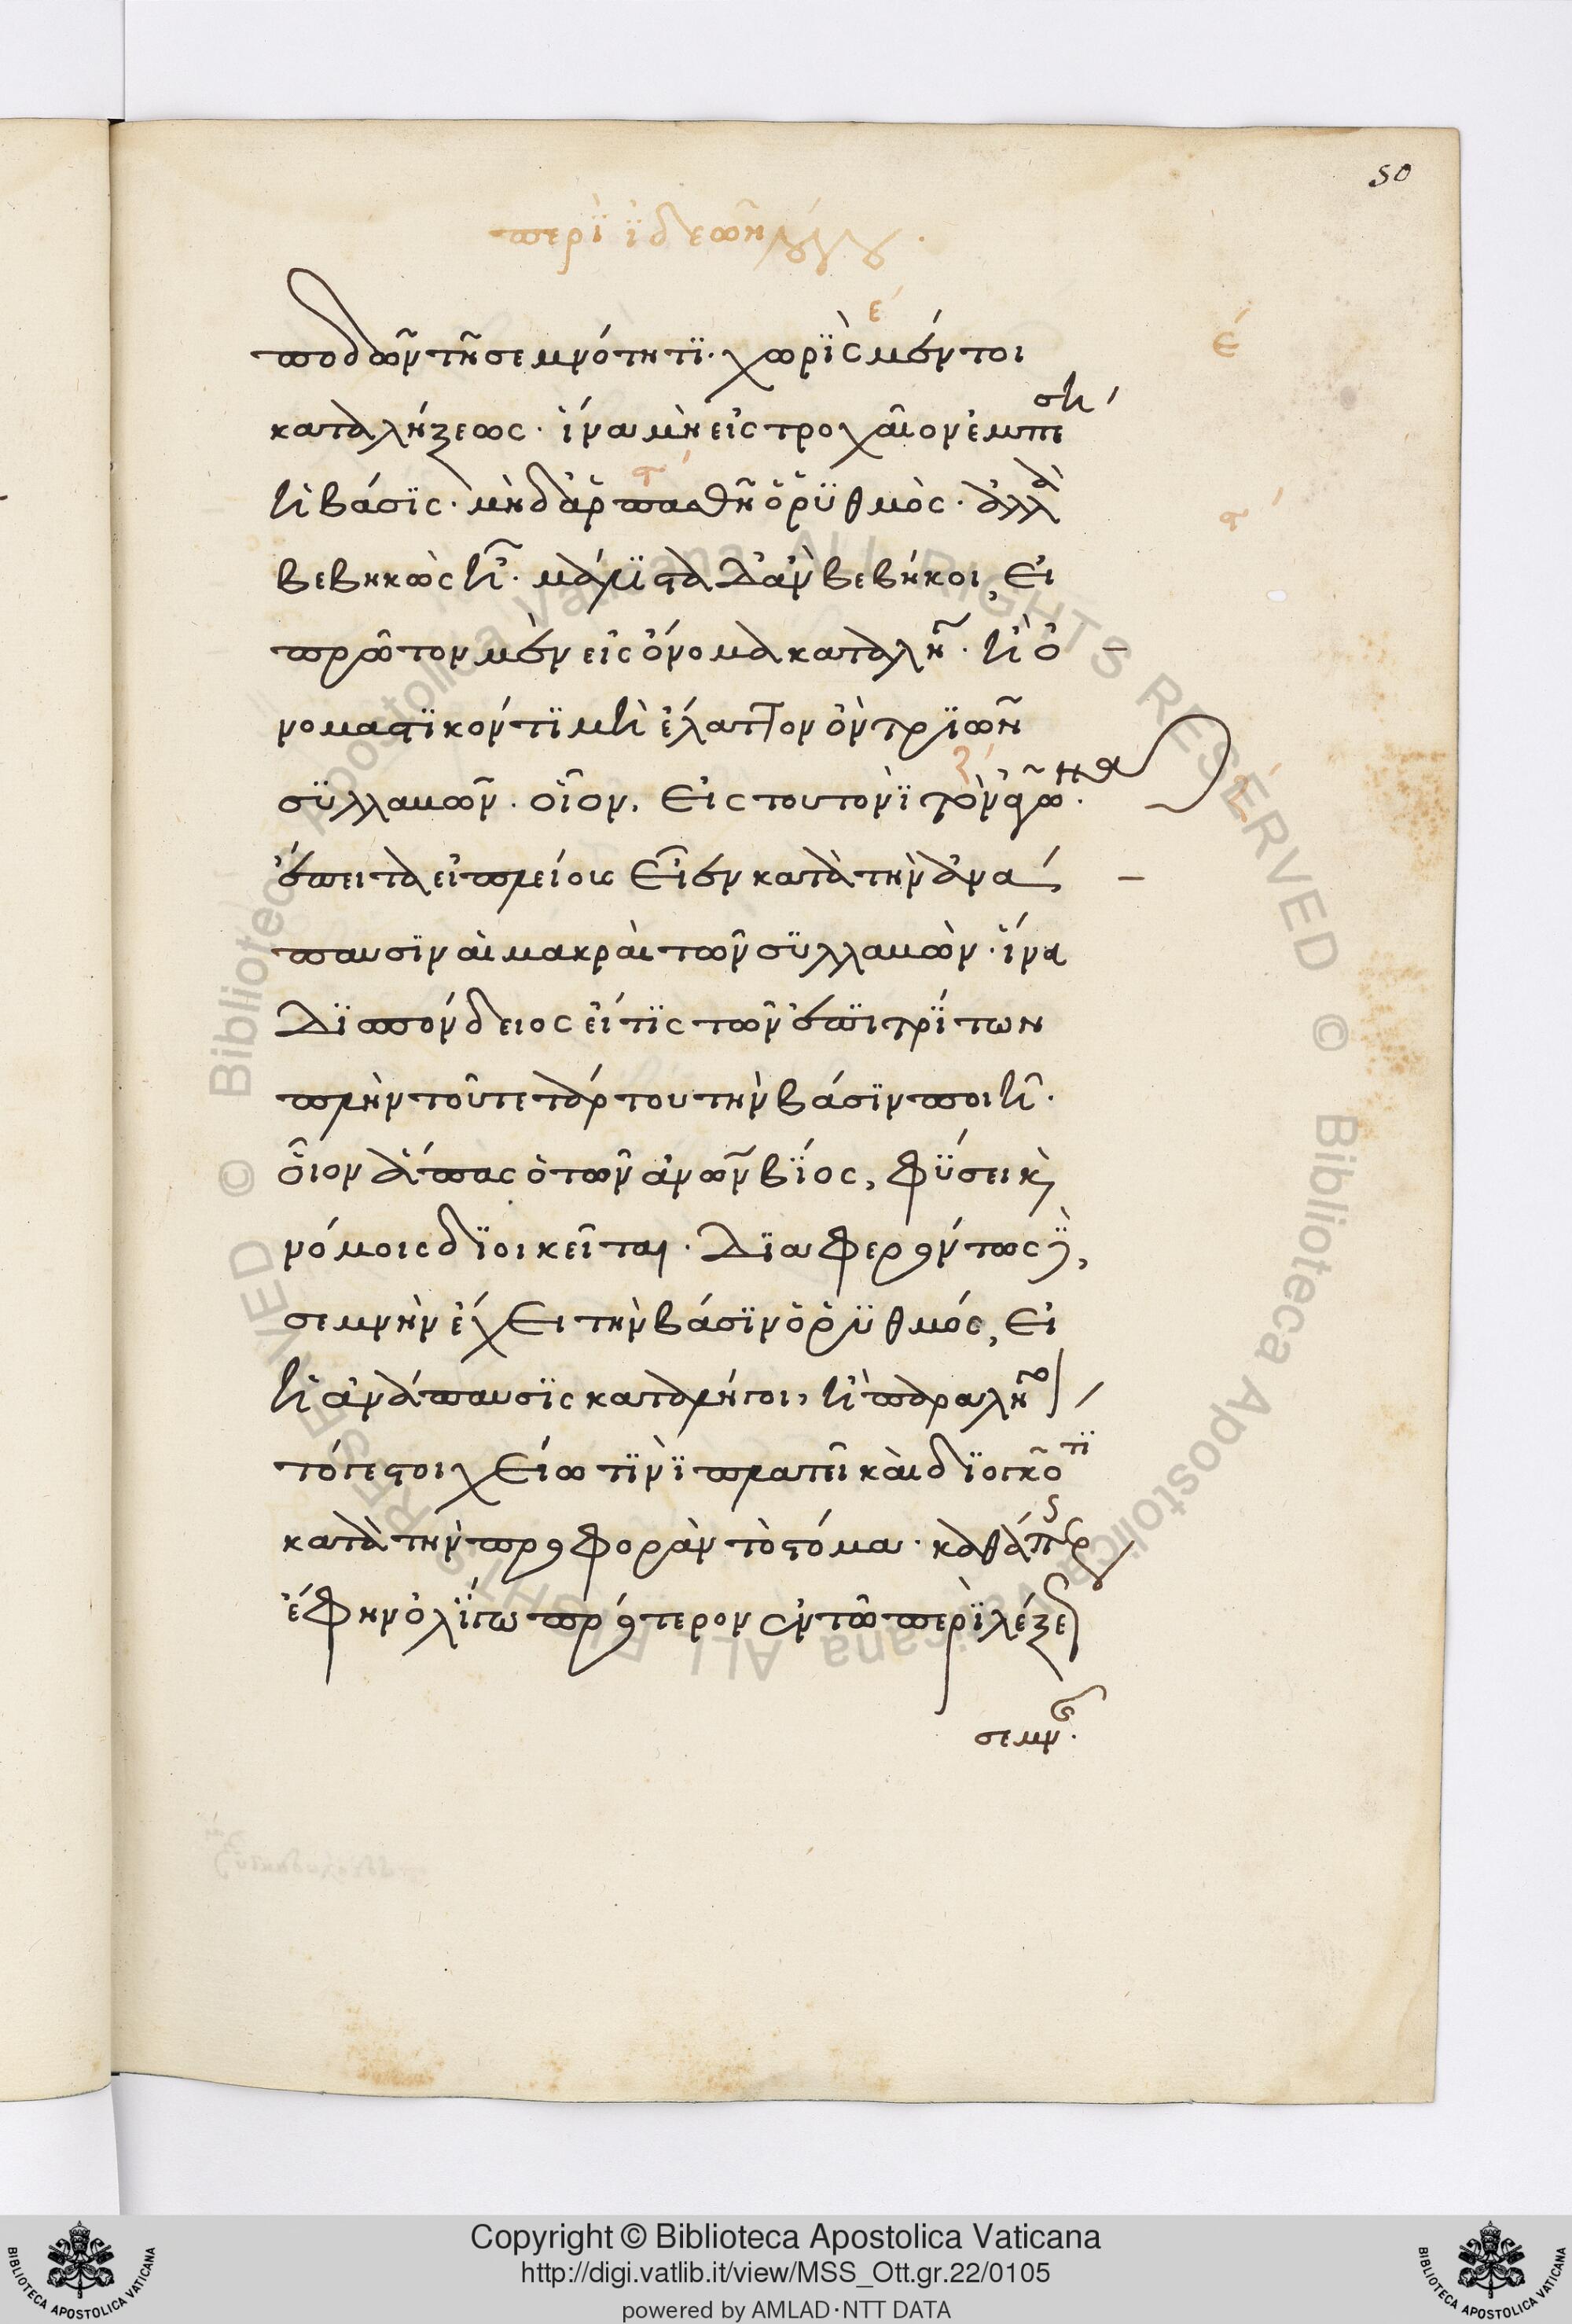 50
περὶ ἰδεῶν
ε´
ποδῶν τῆ σεμνότητι· χωρὶς μέντοι
ε´
καταλήξεως· ἵνα μὴ εἰς τροχαῖον ἐμπέση
ἡ βάσις· μηδ' ἁρπασθῆ ὁ ῥυθμὸς· ἀλλὰ
βεβηκὼς ἦ· μάλιστα δ' ἂν βεβήκοι, εἰ
πρῶτον μὲν εἰς ὄνομα καταλήγοι· ἢ ὀ
νοματικόν τι μὴ ἔλαττον ὂν τριῶν
συλλαβῶν· οἷον, εἰς τουτονὶ τὸν ἀγῶνα
ἔπειτα εἰ πλείους εἶεν κατὰ τὴν ἀνά
παυσιν αἱ μακραὶ τῶν συλλαβῶν· ἵνα
δισπόνδειος εἴ τις τῶν ἐπιτρίτων
πλὴν τοῦ τετάρτου τὴν βάσιν ποιῆ·
οἷον ἅπας ὁ τῶν ἀνων βίος, φύσει κ
νόμοις διοικεῖται· διαφερόντως
σεμνὴν ἔχει τὴν βάσιν ὁ ῥυθμός, εἰ
ἡ ἀνάπαυσις καταλήγοι, ἢ παραλη
τό γε στοιχείω τινὶ πλατεῖ καὶ διογκοῦντι
κατὰ τὴν προφορὰν τὸ στόμα· καθάπερ
ἔφην ὀλίγω πρότερον ἐν τῶ περὶ λέξεως
σεμν·
Copyright © Biblioteca Apostolica Vaticana
http://digi.vatlib.it/view/MSS_Ott.gr.22/0105
powered by AMLAD·NTT DATA
BIBLIOTECA APOSTOLICA VATICANA
BIBLIOTECA APOSTOLICA VATICANA